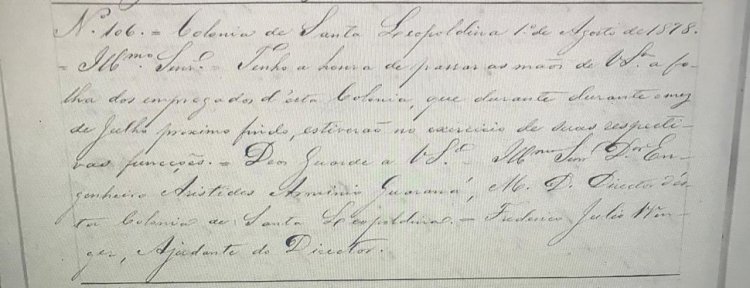 N.º 106. = Colonia de Santa Leopoldina 1.º de Agosto de 1878.
= Illmo. Senr. = Tenho a honra de passar as mãos de V. Sa. a fo-
lha dos empregados d'esta Colonia, que durante durante o mez
de Julho proximo findo, estiverão no exercicio de suas respecti-
vas funcções. = Deos Guarde a V. Sa. = Illmo Senr. Dor. En-
genheiro Aristides Arminio Guaraná, M. D. Director d'es-
ta Colonia de Santa Leopoldina. = Frederico Julio
Ajudante do Director.